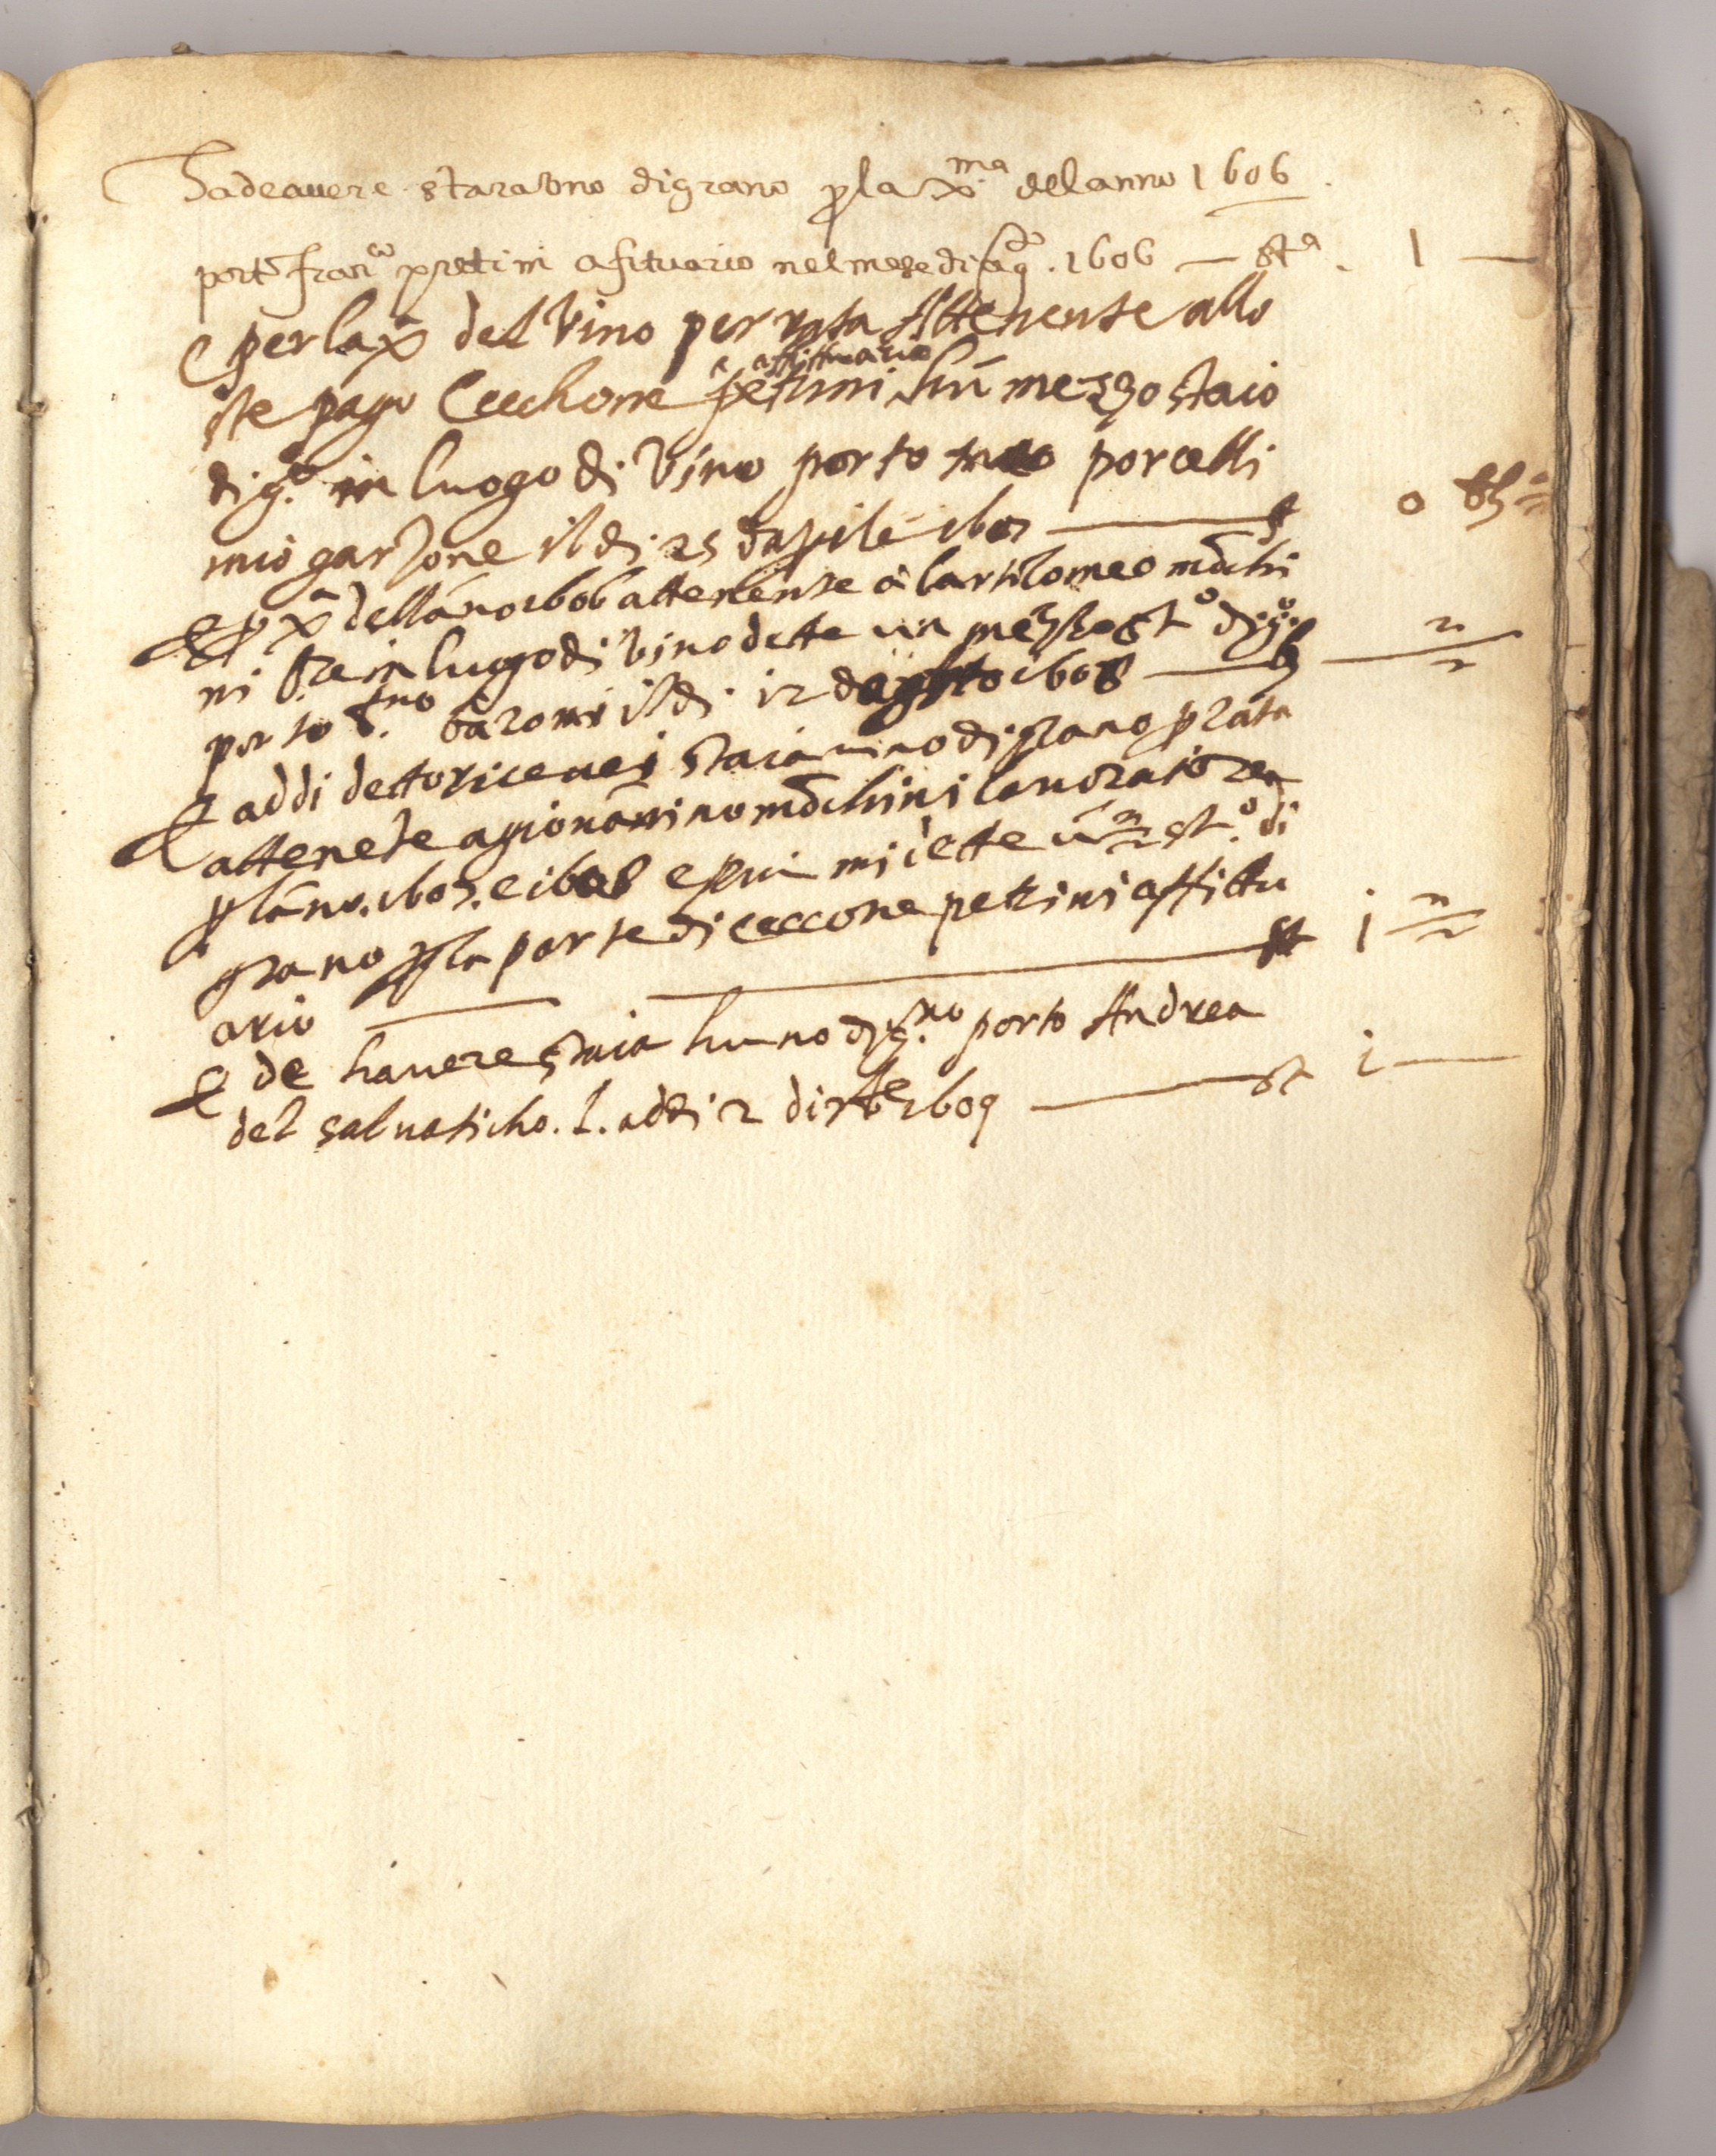 Ha de avere stara uno di grano p la Xma del anno 1606
porto franco petrini afituario nel mese di ago . 1606 — sta . 1 —
E per la Xa del vino per rata Attenente allo
ste pago Cecchone petrini affittuario hun mezzo staio
di g.o in luogo di vino porto porcelli
mio garzone il di 25 daprile 1607 — st 0
E p Xa dellanno 1606 attenente a bartolomeo mochi
ni in luogo di vino dette un mezzo sto di g.o
porto baroni il di 12 dagosto 1608 —
E addi detto ricevei staia uno di grano p rata
attenete a giovannino mochini lavoratore
p lanno 1607. e 1608 e piu mi dette un sto di
grano p la parte di ceccone petrini affittu
ario — st i
E de havere staia huno di g.no porto Andrea
del salvaticho . l . addi 2 di 7bre 1609 — st i —